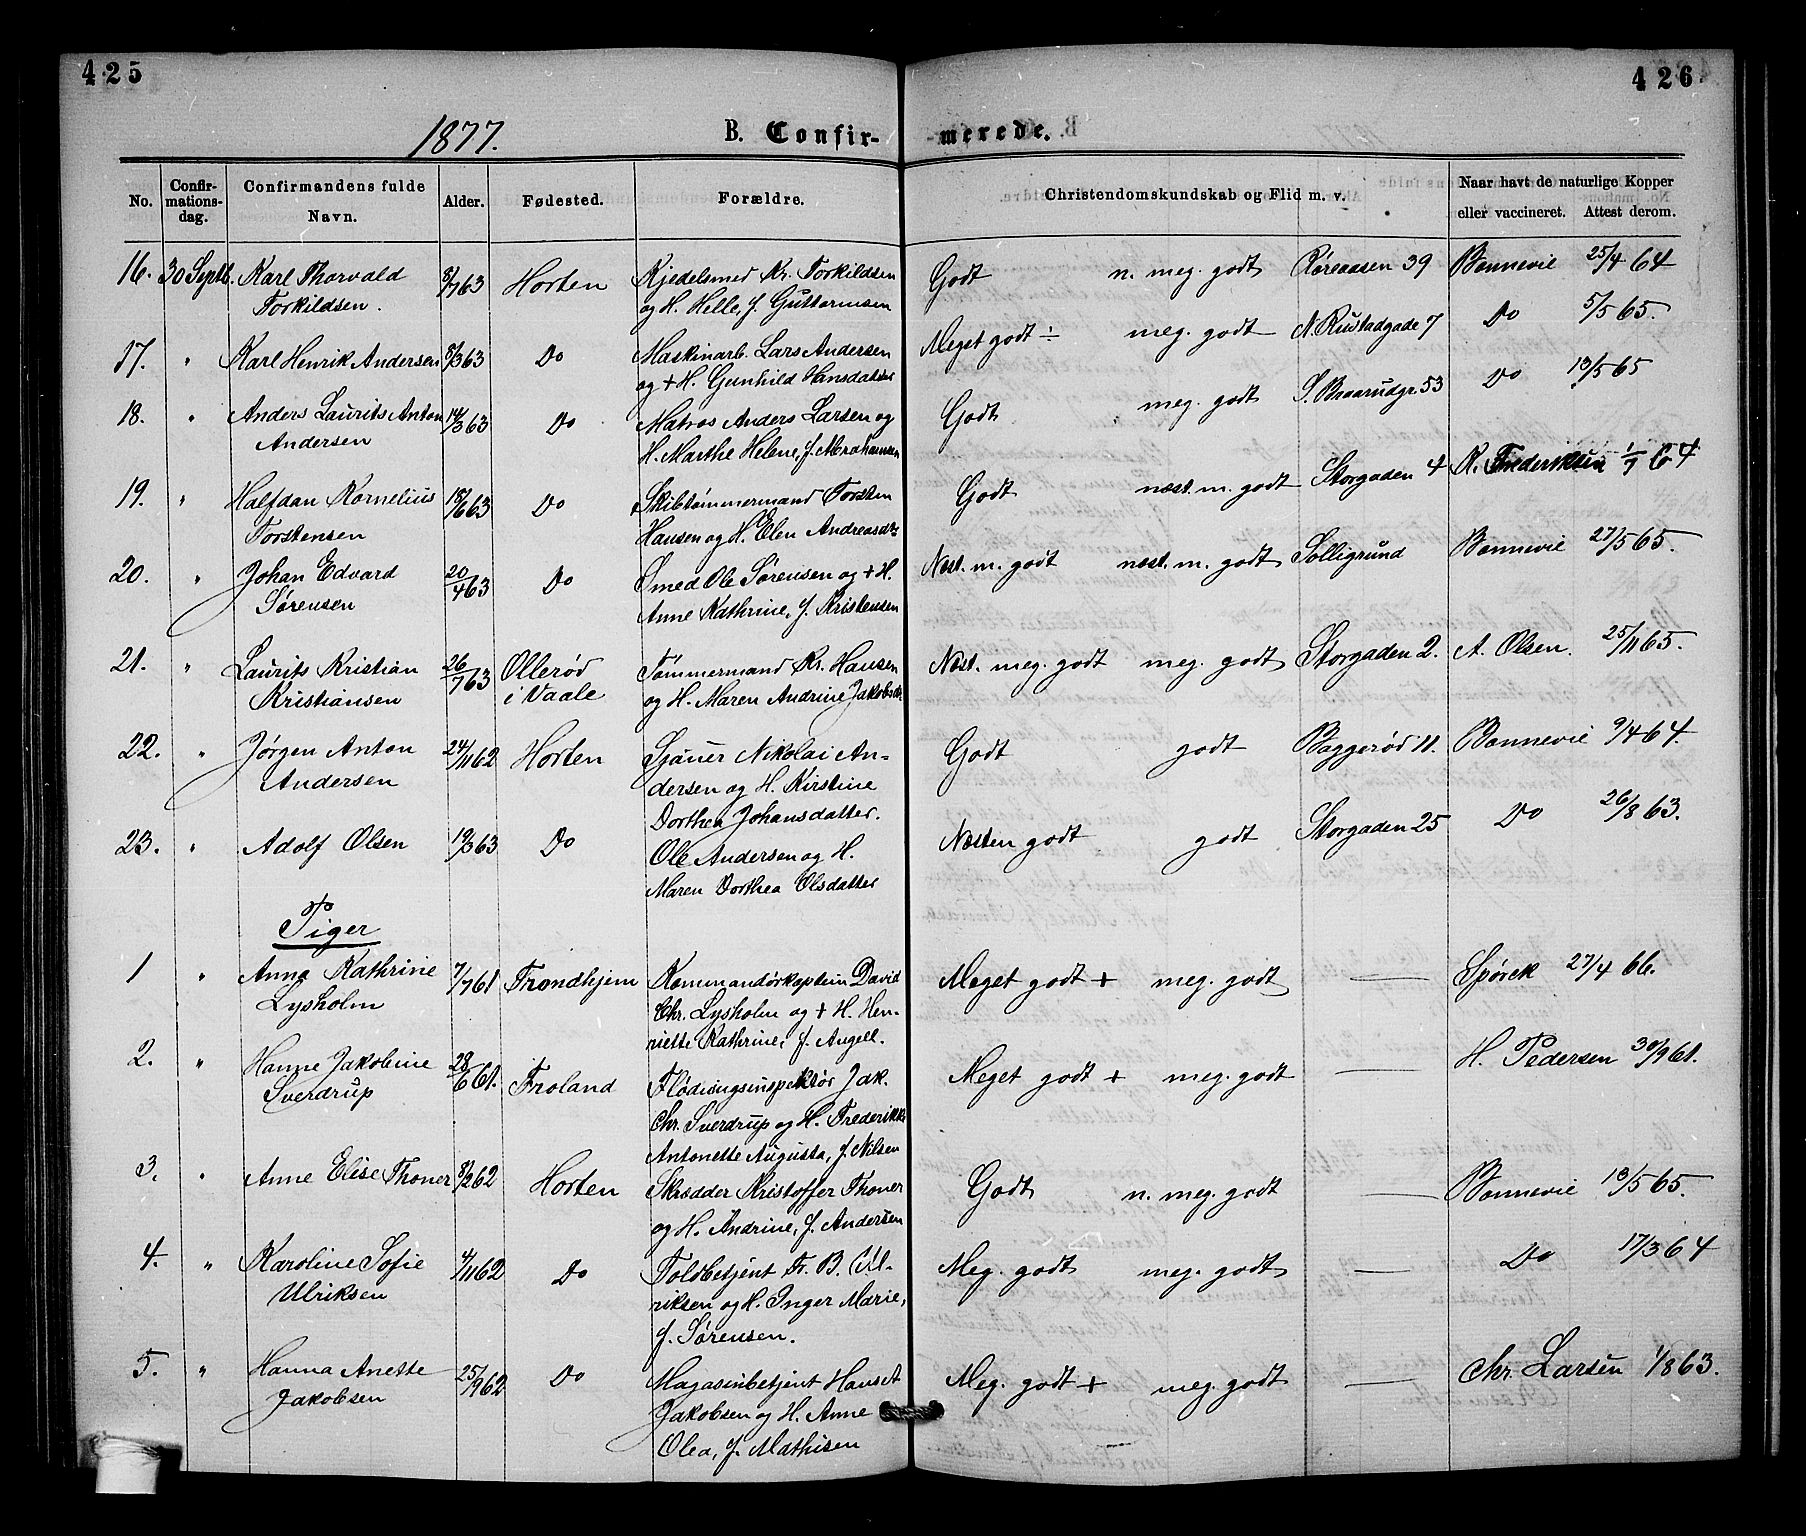 425
426
1877.
B. Confir-
-merede.
No.
Confir-
mations-
dag.
Confirmandens fulde
Navn.
Alder.
Fødested.
Forældre.
Christendomskundskab og Flid m. v.
Naar havt de naturlige Kopper
eller vaccineret. Attest derom.
16. 30 Septb. Karl Thorvald 8/7 63 Horten Kjedelsmed Kr. Torkildsen Godt n. meg. godt Røreaasen 39 Bonnevie 25/4 64
Torkildsen. og H. Helle, f. Guttormsen
17. " Karl Henrik Andersen 8/3 63 Do Maskinarb. Lars Andersen Meget godt ÷ meg. godt N. Rustadgade 7 Do 5/5 65.
og + H. Gunhild Hansdatter
18. " Anders Laurits Anton 14/3 63 Do Matros Anders Larsen og Godt meg. godt S. Braarudgr. 53 Do 13/5 65
Andersen H. Marthe Helene, f. Abrahamsen
19. " Halfdan Kornelius 18/6 63 Do Skibtømmermand Torsten Godt næst. m. godt Storgaden 4 K. Frederiksen 1/7 64
Torstensen Hansen og H. Elen Andreasdtr
20. " Johan Edvard 20/4 63 Do Smed Ole Sørensen og + H. Næst. m. godt næst. m. godt Solligrund Bonnevie 27/5 65.
Sørensen Anne Kathrine, f. Kristensen
21. " Laurits Kristian 26/7 63 Ollerød Tømmermand Kr. Hansen Næst. meg. godt meg. godt Storgaden 2. A. Olsen. 25/11 65.
Kristiansen i Vaale og H. Maren Andrine Jakobsdr
22. " Jørgen Anton 24/11 62 Horten Sjauer Nikolai An- Godt godt Baggerød 11. Bonnevie 9/4 64.
Andersen dersen og H. Kirstine
Dorthea Johansdatter.
23. " Adolf Olsen 19/3 63 Do Ole Andersen og H. Næsten godt godt Storgaden 25 Do 26/8 63.
Maren Dorthea Olsdatter
Piger
1 " Anna Kathrine 7/7 61 Trondhjem Kommandørkaptein David Meget godt + meg. godt — Spörck 27/4 66.
Lysholm Chr. Lysholm og + H. Hen-
riette Kathrine, f. Angell.
2. " Hanne Jakobine 28/6 61. Froland Flödningsinspektör Jak. Meget godt + meg. godt — H. Pedersen 30/9 61.
Sverdrup Chr. Sverdrup og H. Frederikke
Antonette Augusta, f. Nilsen
3. " Anne Elise Thoner 8/2 62 Horten Skrædder Kristoffer Thoner Godt n. meg. godt — Bonnevie 13/5 65.
og H. Andrine, f. Andersen
4. " Karoline Sofie 4/11 62 Do Toldbetjent Fr. B. Ul- Meg. godt meg. godt — Do 17/3 64
Ulriksen riksen og H. Inger Marie,
f. Sørensen.
5. " Hanna Anette 25/9 62 Do Magasinbetjent Hans A Meg. godt + meg. godt — Chr. Larsen 1/8 63.
Jakobsen Jakobsen og H. Anne
Olea, f. Mathisen